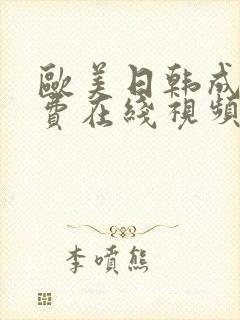 歐美日韩成
費在綫視頻
李噴熊